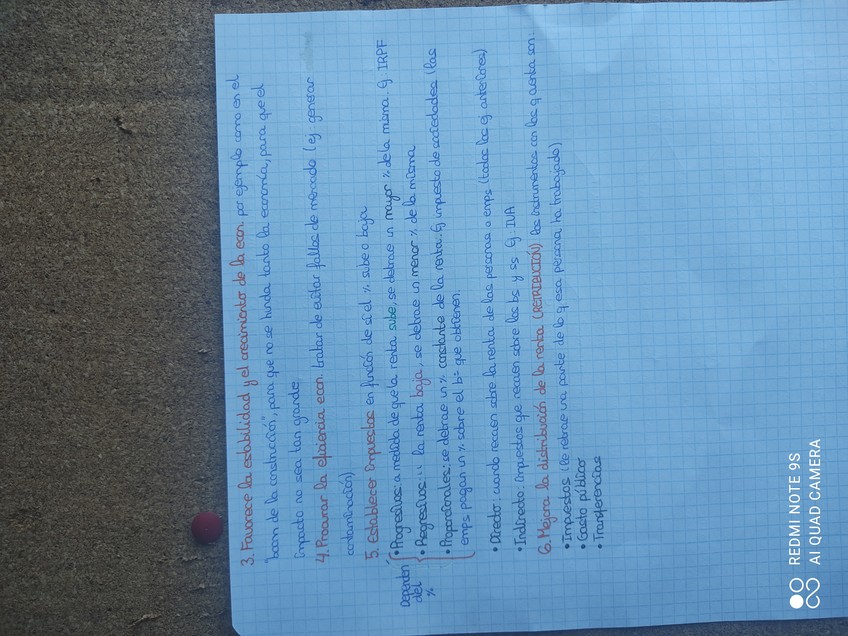 3. Favorece la estabilidad y el crecimiento de la econ. por ejemplo como en el
"boom de la construcción", para que no se hunda tanto la economía, para que el
impacto no sea tan grande
4. Procurar la eficiencia econ. tratar de evitar fallos de mercado (ej generar
contaminación)
5. Establecer impuestos en función de si el % sube o baja
Dependen del %
• Progresivos: a medida de que la renta sube, se detrae un mayor % de la misma. Ej IRPF
• Regresivos: " la renta baja, se detrae un menor % de la misma
• Proporcionales: se detrae un % constante de la renta. Ej impuesto de sociedades (las
emps pagan un % sobre el bº que obtienen.
• Directo: cuando recaen sobre la renta de las personas o emps (todos los ej anteriores)
• Indirecto: impuestos que recaen sobre los bs y ss Ej. IVA
6. Mejora la distribución de la renta (RETRIBUCIÓN) los instrumentos con los q cuenta son:
• Impuestos (le retrae una parte de lo q esa persona ha trabajado)
• Gasto público
• Transferencias
REDMI NOTE 9S
AI QUAD CAMERA